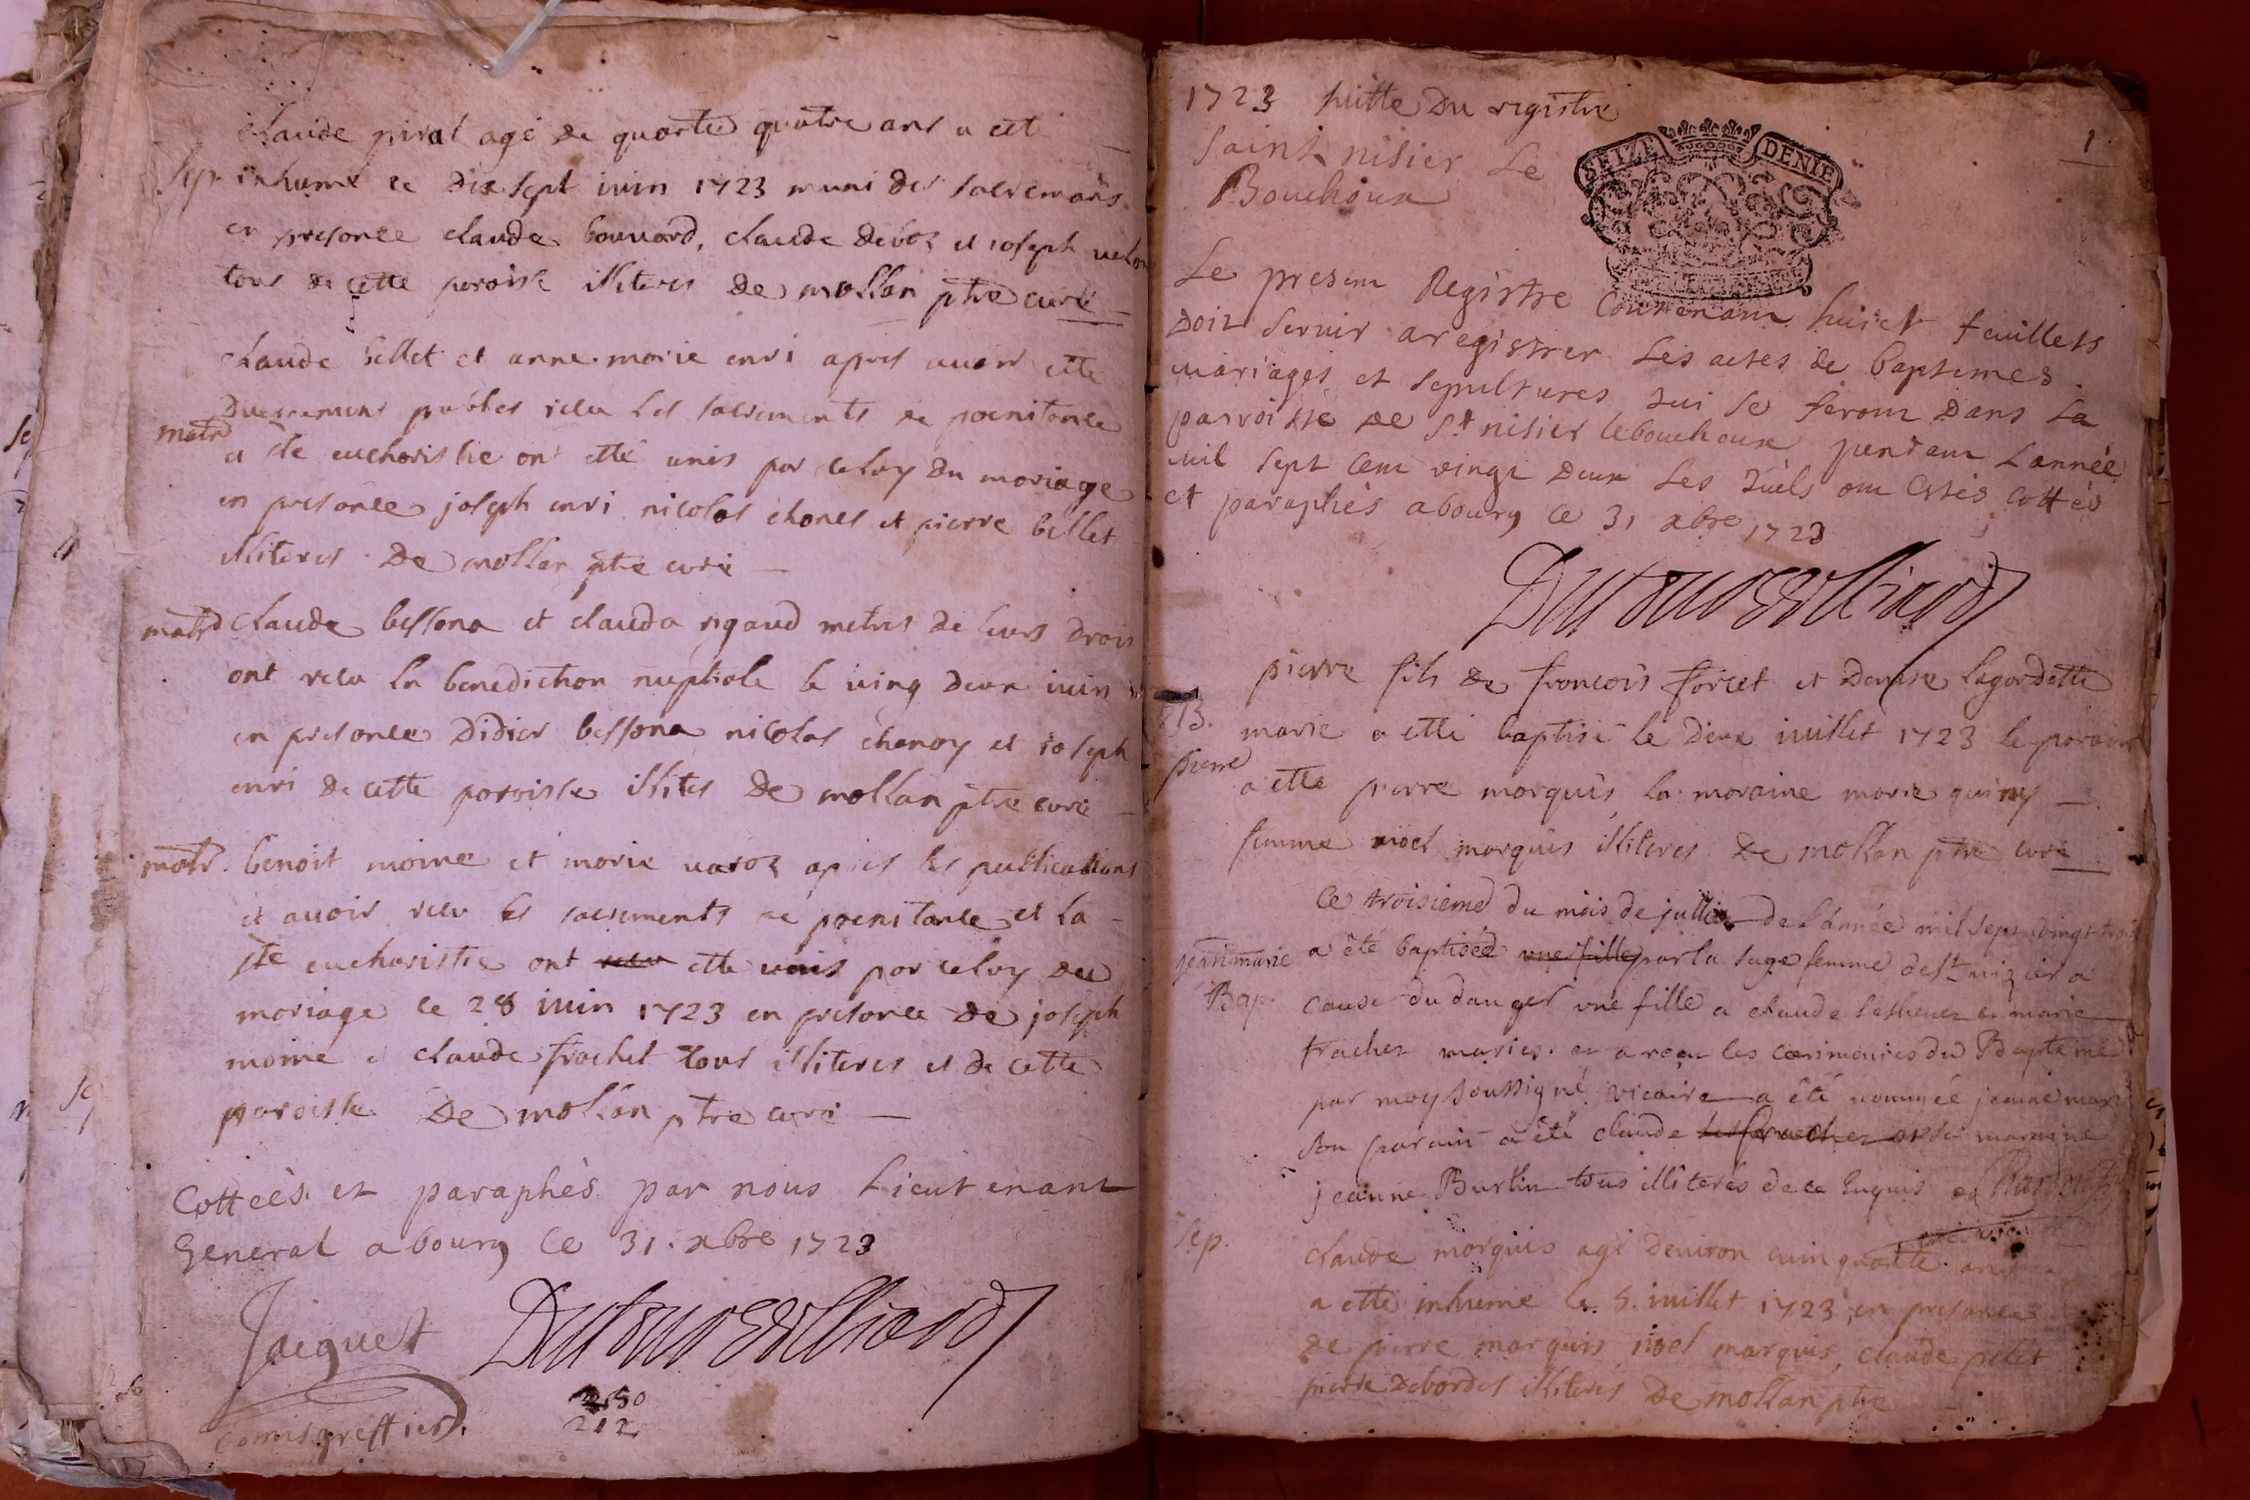 claude piral agé de quarte quatre ans a eté
Sep. inhume le dix sept iuin 1723 muni des sacremans
en presance claude bouvard, claude debos et ioseph
tous de cette paroisse illiteres De mollan ptre curé
claude billet et anne marie enri apres avoir été
publies receu les sacrements de poenitance
matr et ste eucharistie ont etté unis par celuy du mariage
en presance joseph enri nicolas chanel et pierre billet
illiteres De mollan ptre curé
matr claude bessona et clauda rigaud metres de leurs drois
ont receu la benediction nuptiale le ving deux iuin
en presance didier bessona nicolas chanoy et ioseph
enri de cette paroisse illites De mollan ptre curé
matr. benoit moine et marie varoz apres les publications
et avoir receu les sacrements de poenitance et la
ste eucharistie ont receu etté unis par celuy du
mariage ce 28 iuin 1723 en presance de joseph
moine et claude frachet tous illiteres et de cette
paroisse De mollan ptre curé
Cottées et paraphés par nous Lieutenant
General a bourg ce 31. xbre 1723
Jaiquet
Comis greffier.
250
212
1723 suitte Du registre
1
Saint nisier Le
Bouchoux
SEIZE DENIE
Le present Registre Contenant huict feuillets
Doit servir a registrer Les actes de baptemes
mariages et sepultures qui se feront Dans La
parroisse de St nisier le bouchoux pendant L'année
mil sept Cent vingt Deux Les quels ont Estés Cottés
et paraphés a bourg Ce 31 xbre 1723
pierre fils de francois foret et Denise lagordette
B. marie a etté baptisé le deux iuillet 1723 le parain
pierre a etté pierre marquis, la maraine marie guiny
femme noel marquis illiteres De mollan ptre curé
Ce troisieme du mois de juillet de l'année mil sept vingt trois
jeanmarie a été baptisée une fille par la sage femme de St nizier a
Bap. cause du danger une fille a claude et marie
frachet mariés et a reçu les cerimonies du Bapteme
par moy soussigné vicaire a été nommée jeanne marie
Son parain a été claude maraine
jeanne Burlin tous illiterés de ce enquis
Sep. claude marquis agé denviron cuinquante ans
a etté inhume le 5. iuillet 1723 en presance
de pierre marquis noel marquis, claude pelet
pierre debordes illiteres De mollan ptre